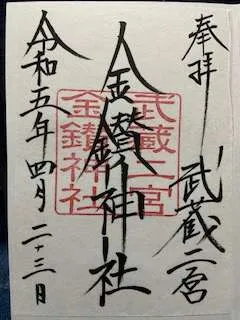 奉拝
武蔵二宮
金鑚神社
武蔵二宮
金鑚神社
令和五年四月二十三日